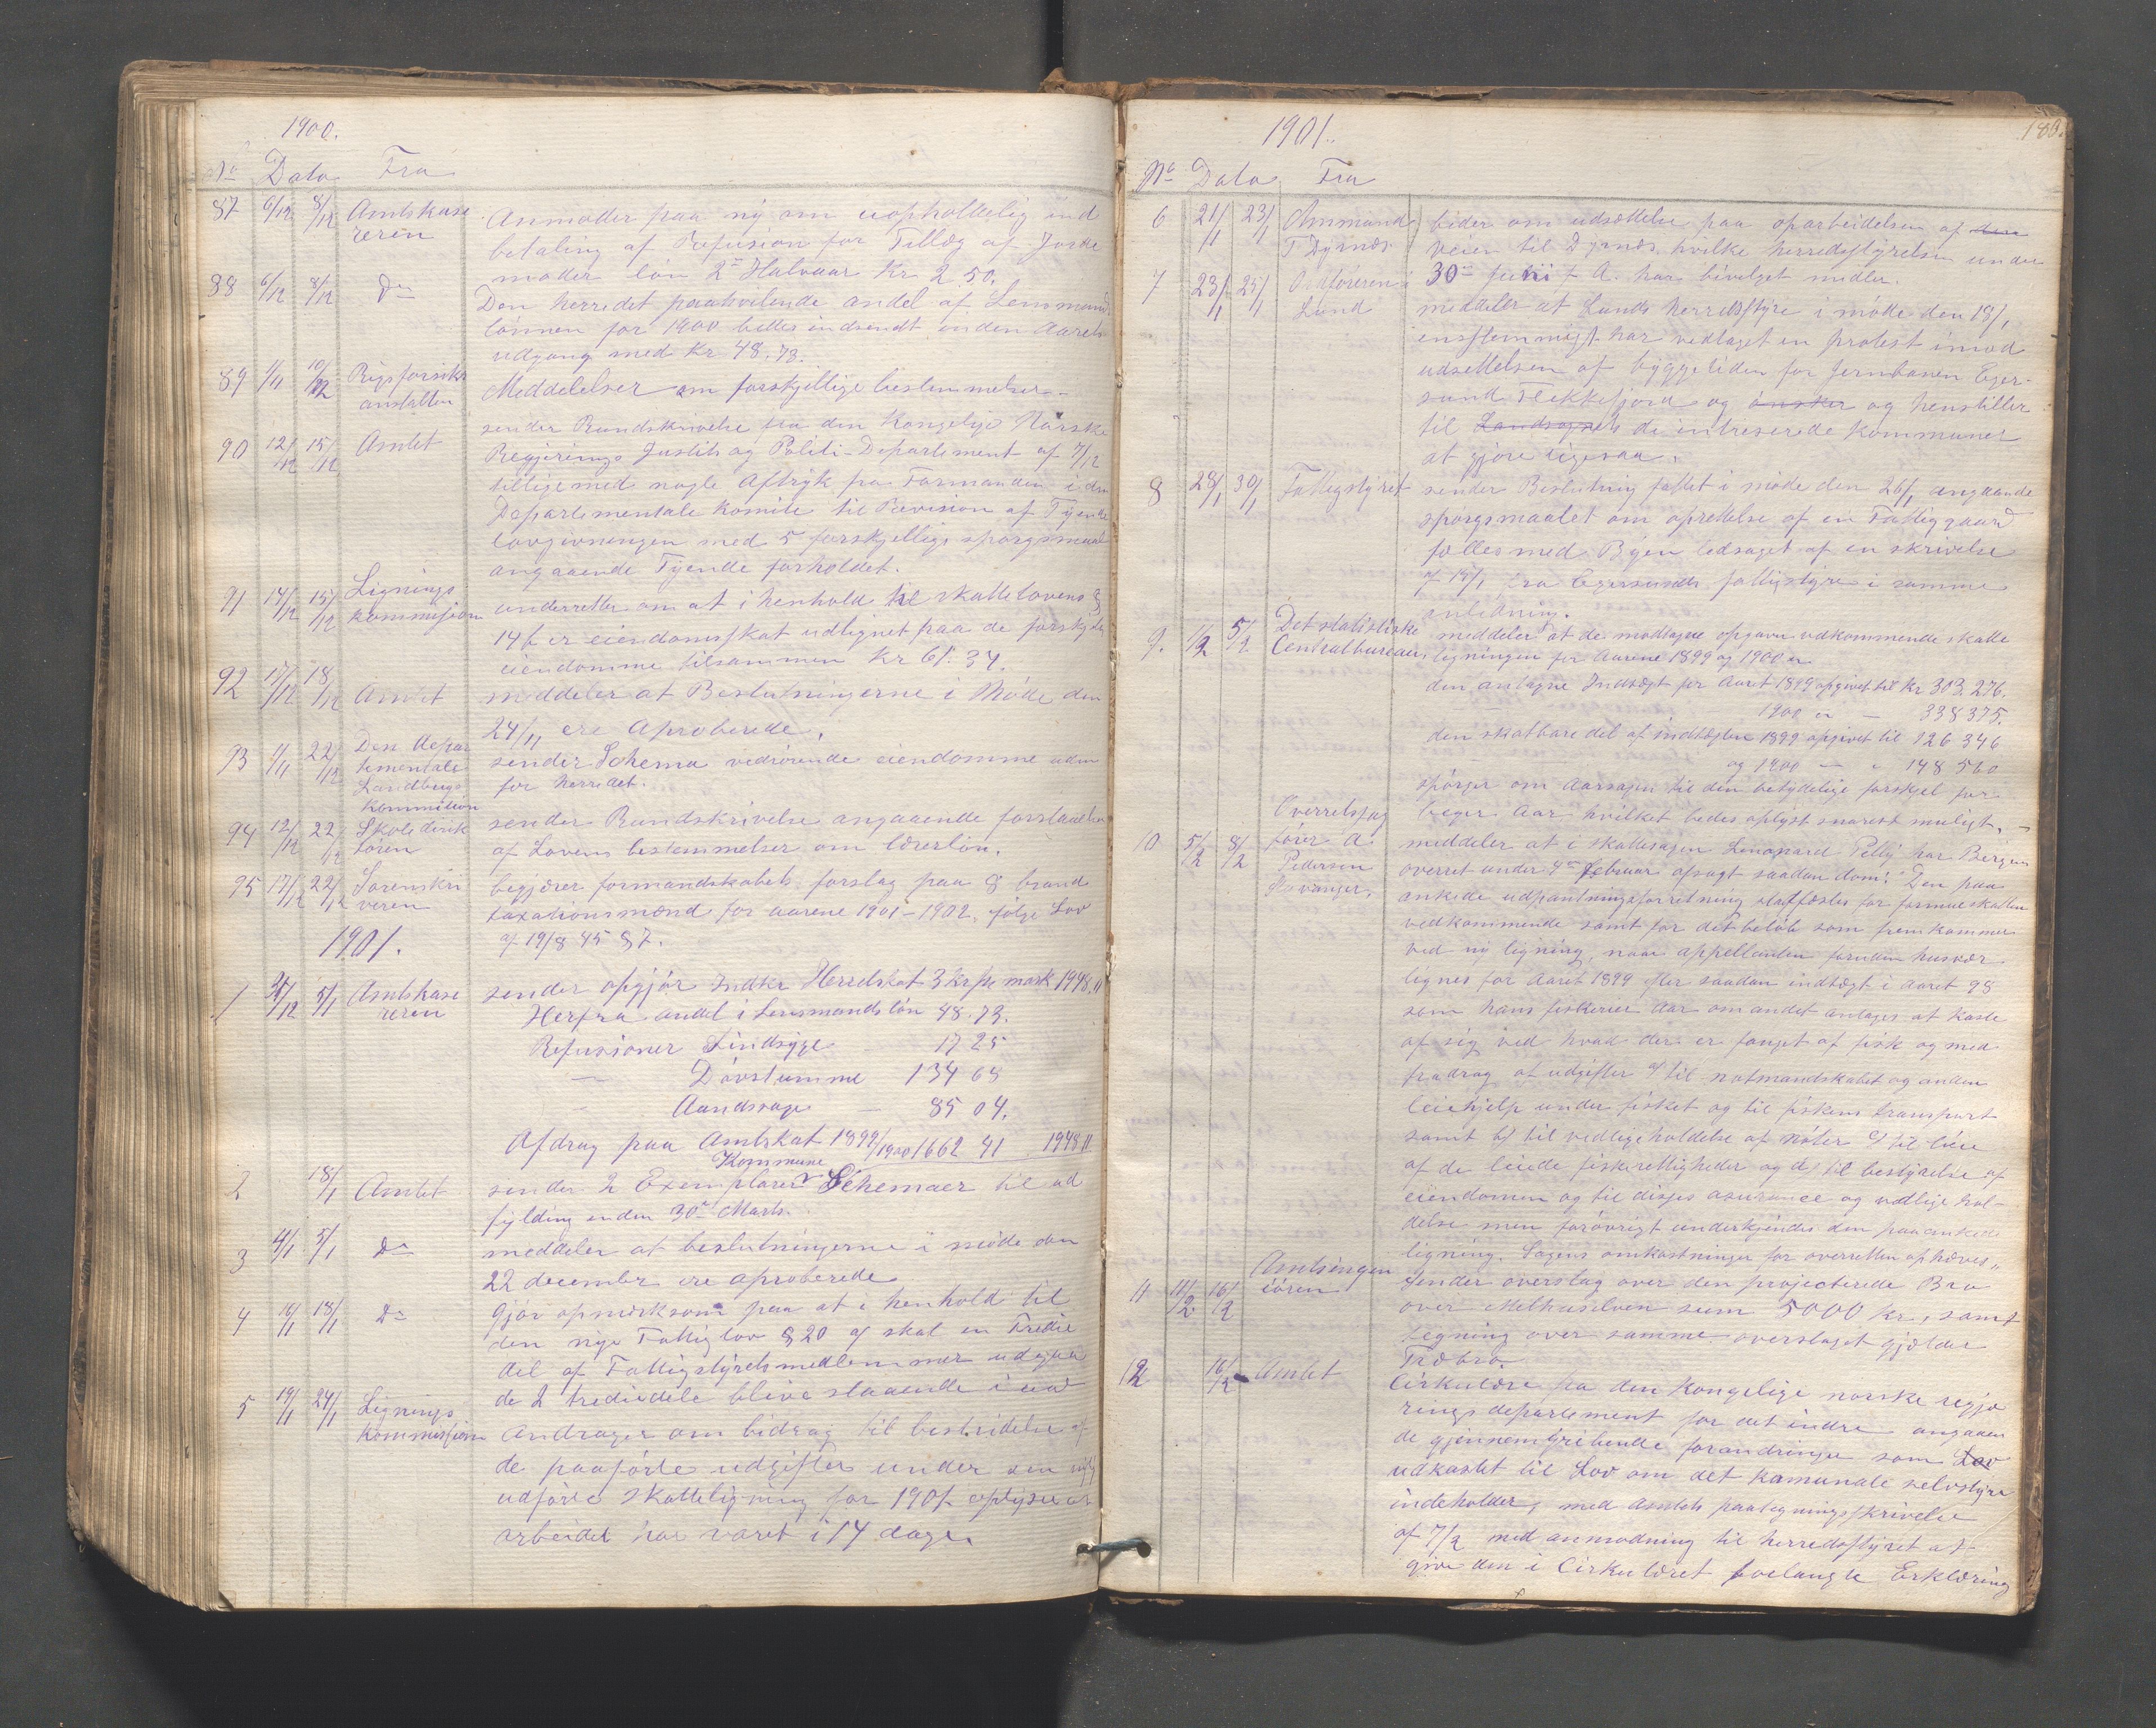 1900.
No Dato Fra
87 6/12 8/12 Amtskase Anmoder paa ny om uopholdelig ind
reren betaling af Refusion for Tillæg af Jorde
moder løn 2den Halvaar Kr 2.50.
88 6/12 8/12 Do Den herredet paahvilende andel af Lensmands
lønnen for 1900 bedes indsendt inden Aarets
udgang med Kr 48.73.
89 1/11 10/12 Rigsforsikr Meddelelser om forskjellige bestemmelser
anstalten
90 12/12 15/12 Amtet sender Rundskrivelse fra den Kongelige Norske
Regjerings Justits og Politi-Departement af 7/12
tilligemed nogle Aftryk fra Formanden i den
Departementale Komite til Revision af Tyende
lovgivningen med 5 forskjellige spørgsmaal
angaaende Tyende forholdet.
91 14/12 15/12 Lignings underretter om at i henhold til skattelovens §
kommisjon 14 f er eiendomsskat udlignet paa de forskj
eiendomme tilsammen Kr 61.34.
92 17/12 18/12 Amtet meddeler at Beslutningerne i Møde den
24/11 ere Aproberede.
93 1/11 22/12 Den depar sender Schema vedrørende eiendomme uden
tementale for herredet.
Landbrugs
kommision
94 12/12 22/12 Skoledirek sender Rundskrivelse angaaende forstaaelsen
tøren af Lovens bestemmelser om lærerløn.
95 17/12 22/12 Sorenskri begjærer formandskabets forslag paa 8 brand
veren taxationsmænd for aarene 1901-1902, ifølge Lov
1901. af 19/8 45 § 7.
1 31/12 5/1 Amtskase sender opgjør Indkr Herredskat 3 kr pr mark 1948,11
reren Herfra andel i Lensmandsløn 48.73.
Refusioner Sindsyge 17 25
— Døvstumme 134 68
Aandssvage — 85 04.
Afdrag paa Amtskat 1899/1900 1662 41 1948 11
2 18/1 Amtet sender 2 Exemplarer Kommune Schemaer til ud
fylding inden 30te Marts.
3 4/1 5/1 Do meddeler at beslutningerne i møde den
22 decembr ere aproberede
4 16/1 18/1 Do Gjør opmerksom paa at i henhold til
den nye Fattiglov § 20 skal en Tredie
del af Fattigstyrets medlemmer udgaa
de 2 trediedele blive staaende i
5 19/1 24/1 Lignings Andrager om bidrag til bestridelse af
Kommissjon de paaførte udgifter under den
udførte skatteligning for 1901 oplyser at
arbeidet har varet i 14 dage.
1901. 180.
No Dato Fra
6 21/1 23/1 Ammund beder om udsættelse paa oparbeidelsen af den
T Dyrnæs veien til Dyrnæs hvilke herredsstyrelsen under
30te juni f A. har bevilget midler.
7 23/1 25/1 Ordføreren i meddeler at Lunds herredsstyre i møde den 18/1
Lund enstemmigt har vedtaget en protest imod
udsettelsen af byggetiden for Jernbanen Eger-
sund Flekkefjord og ønsker og henstiller
til Landsogn de intreserede Kommuner
at gjøre ligesaa.
8 28/1 30/1 Fattigstyret sender Beslutning fattet i møde den 26/1 angaaende
spørgsmaalet om oprettelse af en Fattiggaard
fælles med Byen ledsaget af en skrivelse
af 15/1 fra Egersunds fattigstyre i samme
anledning.
9. 1/2 5/2 Det statistiske meddeler at de modtagne opgaver vedkommende skatte
Centralbureau, ligningen for Aarene 1899 og 1900 er
den antagne Indtægt for Aaret 1899 opgivet til Kr 303.276.
1900 er — 338 375.
den skatbare del af indtægten 1899 opgivet til 126 346
og 1900 — 148 560
spørger om Aarsagen til den betydelige forskjel for
begge Aar hvilket bedes oplyst snarest muligt.
10 5/2 8/2 Overretssag meddeler at i skattesagen Leonard Pelly har Bergens
fører A. overret under 4de februar afsagt saadan dom: Den paa
Pedersen ankede udpantningsforretning stadfæstes for formueskatten
Stvanger, vedkommende samt for det beløb som fremkommer
ved ny ligning, naar appellanten foruden husvær
lignes for Aaret 1899 efter saadan indtægt i aaret 98
som hans fiskerier Aar om andet antages at kaste
af sig ved hvad der er fanget af fisk og med
fradrag at udgifter a/ til notmandskabet og anden
leiehjelp under fisket og til fiskens transport
samt b/ til vedligeholdelse af nøter c/ til leie
af de leiede fiskerettigheder og d/ til bestyrelse af
eiendomen og til disses asurance og vedligehol-
delse men forøvrigt underkjendes den paaankede
ligning. Sagens omkostninger for overretten ophæves"
11 11/2 16/2 Amtsingen sender overslag over den projecterede Bro
iøren over Melhuselven sum 5000 Kr, samt
tegning over samme overslaget gjælder
Træbro.
12 16/2 Amtet Cirkulære fra den Kongelige norske regje
rings departement for det indre angaaen
de gjennemgribende forandringer som Lov
udkastet til Lov om det kamunale selvstyre
indeholder, med Amtets paategningsskrivelse
af 7/2 med anmodning til herredsstyret at
give den i Cirkulæret forlangte Erklæring